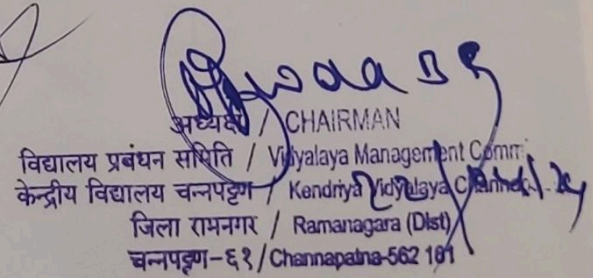 अध्यक्ष / CHAIRMAN
विद्यालय प्रबंधन समिति / Vidyalaya Management Comm
केन्द्रीय विद्यालय चन्नपट्टण / Kendriya Vidyalaya
जिला रामनगर / Ramanagara (Dist)
चन्नपट्टण-६१/Channapatna-562 161